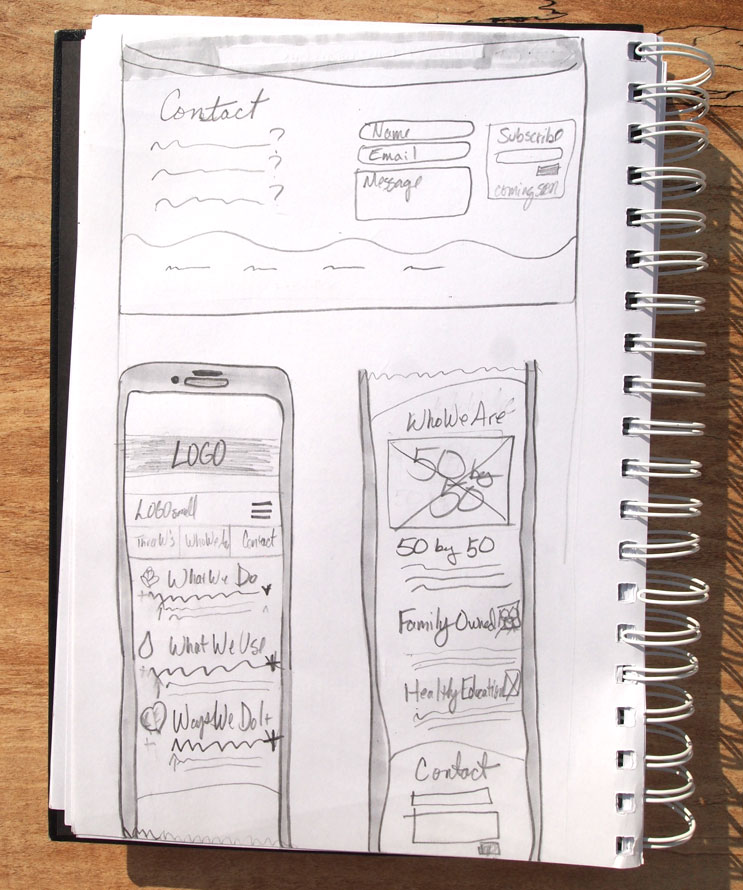 Contact
?
?
?
Name
Email
Message
Subscribe
coming soon
LOGO
LOGO small
WhoWeAre Contact
What We Do
What We Use
Ways We Do It
Who We Are
50 by
50
50 by 50
Family Owned
Healthy Education
Contact